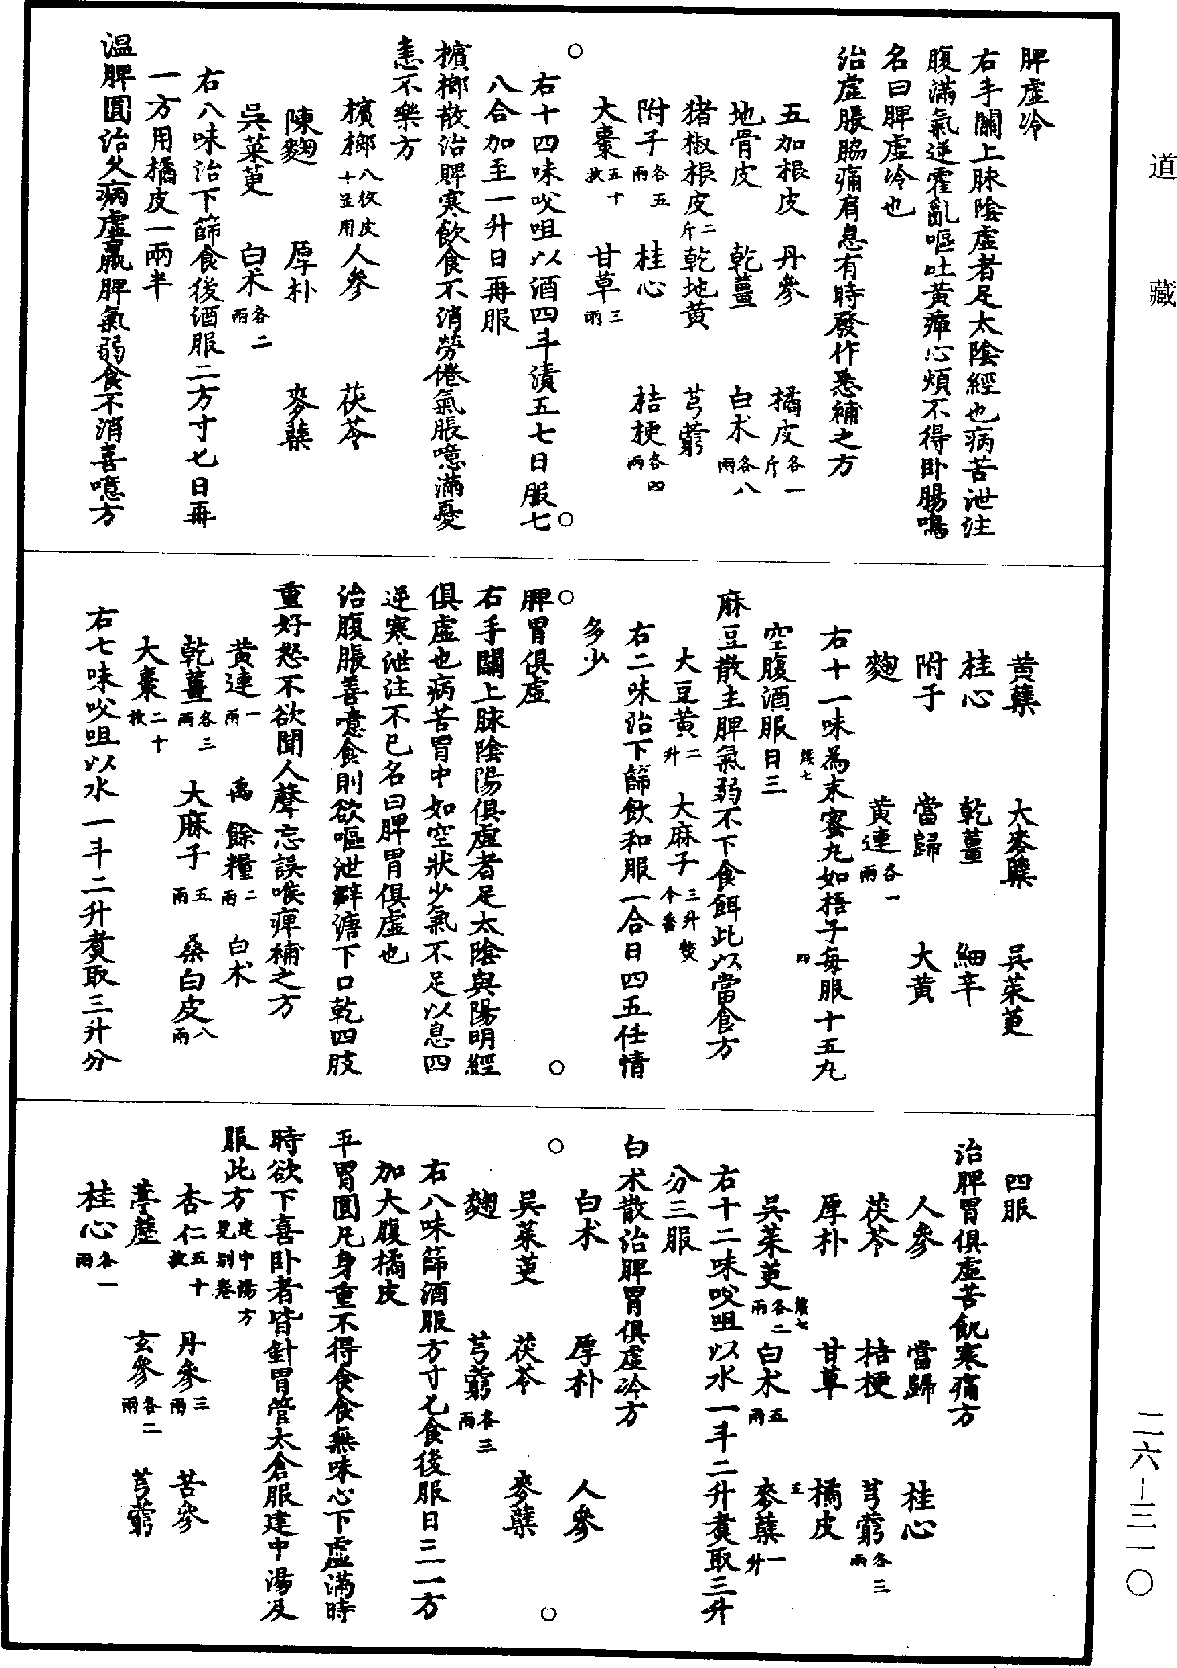 道藏
脾虛冷
右手關上脉陰虛者足太陰經也病苦泄注
腹滿氣逆霍亂嘔吐黃疸心煩不得卧腸鳴
名曰脾虛冷也
治虛脹脇痛肩息有時發作悉補之方
五加根皮 丹參 橘皮各一斤
地骨皮 乾薑 白术各八兩
猪椒根皮二斤 乾地黃 芎藭
附子各五兩 桂心 桔梗各四兩
大棗五十枚 甘草三兩
右十四味㕮咀以酒四斗漬五七日服七
八合加至一升日再服
檳榔散治脾寒飲食不消勞倦氣脹噫滿憂
恚不樂方
檳榔八枚皮子並用 人參 茯苓
陳麴 厚朴 麥蘖
吳茱萸 白术各二兩
右八味治下篩食後酒服二方寸匕日再
一方用橘皮一兩半
溫脾圓治久病虛羸脾氣弱食不消喜噫方
黃蘗 大麥蘖 吳茱萸
桂心 乾薑 細辛
附子 當歸 大黃
麴 黃連各一兩
右十一味為末蜜丸如梧子每服十五丸
空腹酒服日三
麻豆散主脾氣弱不下食餌此以當食方
大豆黃二升 大麻子三升熬令香
右二味治下篩飲和服一合日四五任情
多少
脾胃俱虛
右手關上脉陰陽俱虛者足太陰與陽明經
俱虛也病苦胃中如空狀少氣不足以息四
逆寒泄注不已名曰脾胃俱虛也
治腹脹善噫食則欲嘔泄澼溏下口乾四肢
重好怒不欲聞人聲忘誤喉痺補之方
黃連一兩 禹餘糧二兩 白术
乾薑各三兩 大麻子五兩 桑白皮八兩
大棗二十枚
右七味㕮咀以水一斗二升煮取三升分
四服
治脾胃俱虛苦飢寒痛方
人參 當歸 桂心
茯苓 桔梗 芎藭各三兩
厚朴 甘草 橘皮
吳茱萸各二兩 白术五兩 麥蘖一升
右十二味㕮咀以水一斗二升煮取三升
分三服
白术散治脾胃俱虛冷方
白术 厚朴 人參
吳茱萸 茯苓 麥蘖
麴 芎藭各三兩
右八味篩酒服方寸匕食後服日三一方
加大腹橘皮
平胃圓凡身重不得食食無味心下虛滿時
時欲下喜卧者皆針胃管太倉服建中湯及
服此方建中湯方見別卷
杏仁五十枚 丹參三兩 苦參
葶藶 玄參各二兩 芎藭
桂心各一兩
二六－三一〇